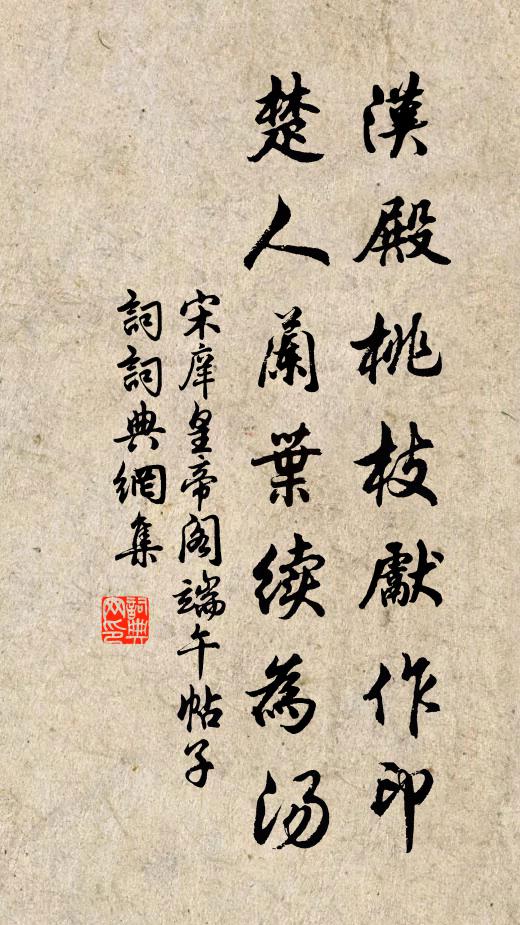 漢殿桃枝獻作印
楚人蘭葉續為汤
宋庠皇帝阁端午帖子
詞詞典網集
詞典
网印